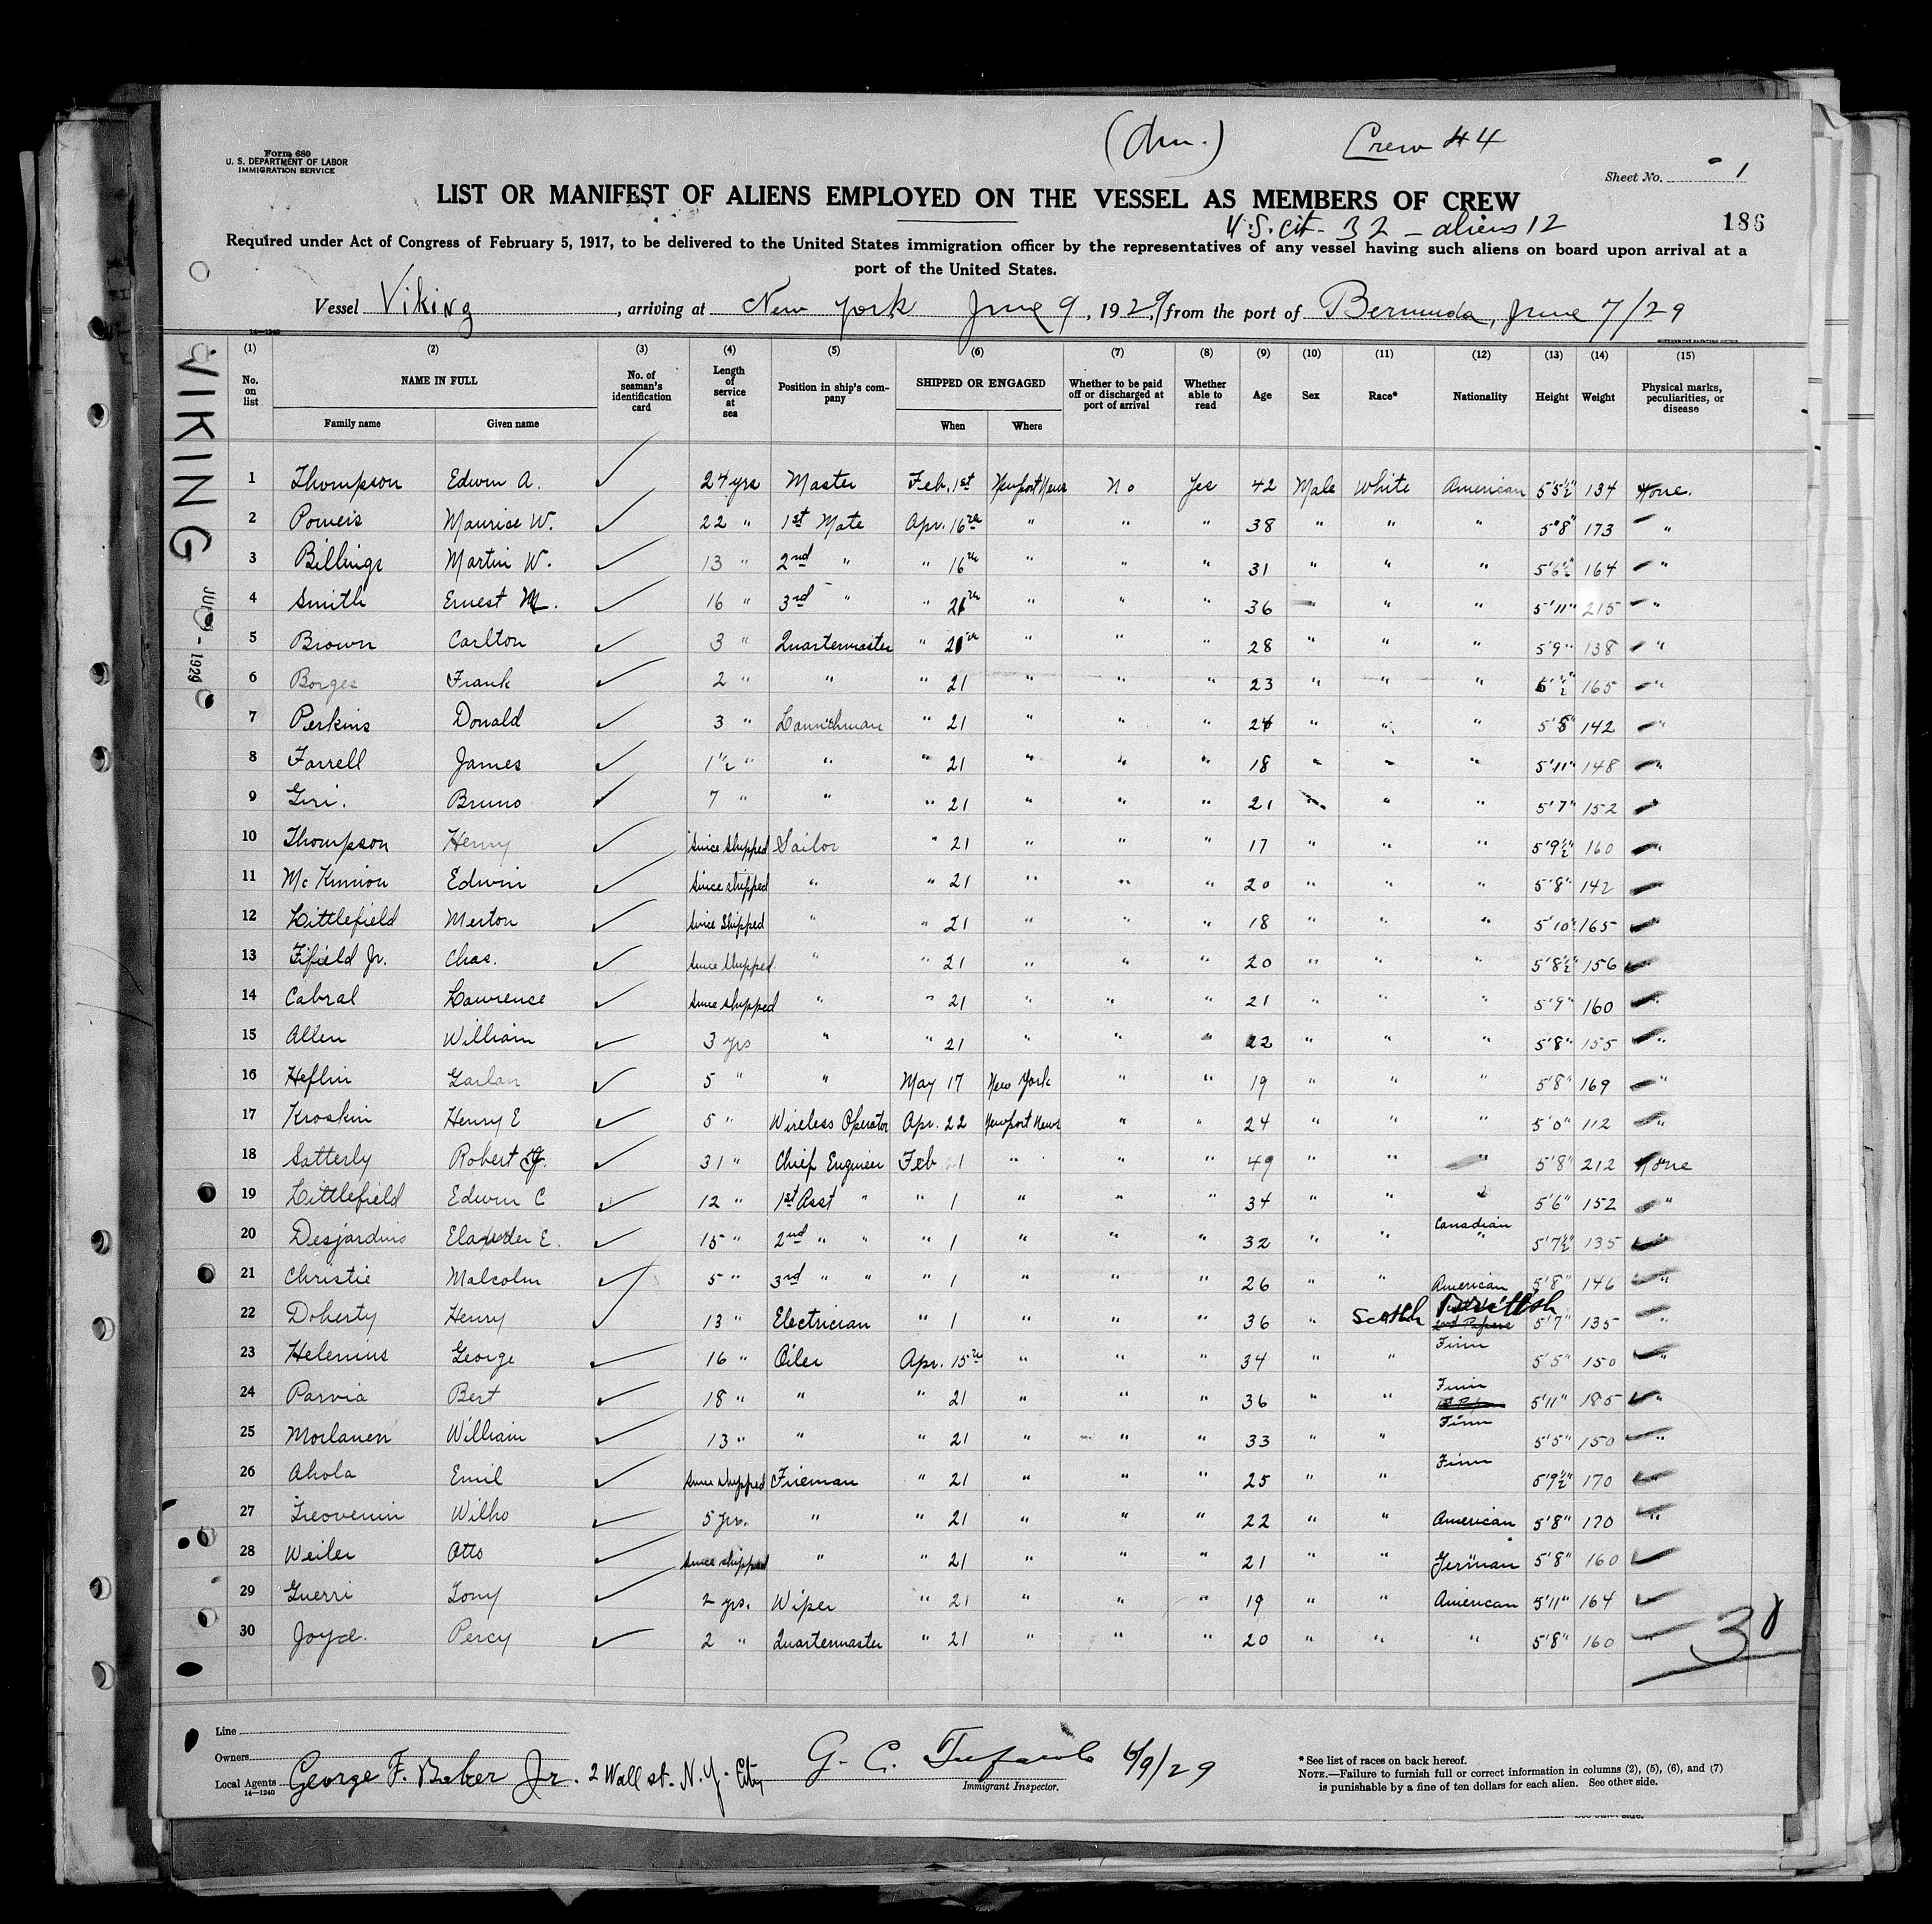 (Am.) Crew #4
Form 680
U. S. DEPARTMENT OF LABOR
IMMIGRATION SERVICE
Sheet No. 1
LIST OR MANIFEST OF ALIENS EMPLOYED ON THE VESSEL AS MEMBERS OF CREW
U.S. cit - 32 - aliens 12
186
Required under Act of Congress of February 5, 1917, to be delivered to the United States immigration officer by the representatives of any vessel having such aliens on board upon arrival at a
port of the United States.
Vessel Viking, arriving at New York June 9, 1929, from the port of Bermuda, June 7/29
14—1240
VIKING
1929
(1) (2) (3) (4) (5) (6) (7) (8) (9) (10) (11) (12) (13) (14) (15)
No. on list
NAME IN FULL
Family name Given name
No. of seaman's identification card
Length of service at sea
Position in ship's company
SHIPPED OR ENGAGED
When Where
Whether to be paid off or discharged at port of arrival
Whether able to read
Age
Sex
Race*
Nationality
Height
Weight
Physical marks, peculiarities, or disease
1 Thompson Edwin A. 24 yrs Master Feb. 1st Newport News No Yes 42 Male White American 5'5½" 134 None.
2 Powers Maurice W. 22 " 1st Mate Apr. 16th " " " 38 " " " 5'8" 173 "
3 Billings Martin W. 13 " 2nd " " 16th " " " 31 " " " 5'6½" 164 "
4 Smith Ernest M. 16 " 3rd " " 21th " " " 36 " " 5'11" 215 "
5 Brown Carlton 3 " Quartermaster " 21th " " " 28 " " " 5'9" 138 "
6 Borges Frank 2 " " " 21 " " " 23 " " " 165 "
7 Perkins Donald 3 " Launchman " 21 " " " 24 " " 5'8" 142 "
8 Farrell James 1½ " " " 21 " " " 18 " " " 5'11" 148 "
9 Geri. Bruno 7 " " " 21 " " " 21 " " " 5'7" 152 "
10 Thompson Henry Since Shipped Sailor " 21 " " " 17 " " " 5'9½" 160 "
11 McKinnon Edwin Since shipped " " 21 " " " 20 " " " 5'8" 142 "
12 Littlefield Merton Since Shipped " " 21 " " " 18 " " " 5'10" 165 "
13 Fifield Jr. Chas. Since Shipped " " 21 " " " 20 " " " 5'8½" 156 "
14 Cabral Lawrence Since shipped " " 21 " " " 21 " " " 5'9" 160 "
15 Allen William 3 yrs " " 21 " " " 22 " " " 5'8" 155 "
16 Heflin Garlan 5 " " May 17 New York " " 19 " " " 5'8" 169 "
17 Kroskin Henry E 5 " Wireless Operator Apr. 22 Newport News " " 24 " " " 5'0" 112 "
18 Satterly Robert J. 31 " Chief Engineer Feb 1 " " " 49 " " " 5'8" 212 None
19 Littlefield Edwin C 12 " 1st Asst " " 1 " " " 34 " " " 5'6" 152 "
20 Desjardins E. 15 " 2nd " " " 1 " " " 32 " " Canadian " 5'7½" 135 "
21 Christie Malcolm 5 " 3rd " " " 1 " " " 26 " " American 5'8" 146 "
22 Doherty Henry 13 " Electrician " 1 " " " 36 " Scotch British 2nd Papers 5'7" 135 "
23 Helenius George 16 " Oiler Apr. 15th " " " 34 " " Finn 5'5" 150 "
24 Parvia Bert 18 " " " 21 " " " 36 " " Finn 5'11" 185 "
25 Moilanen William 13 " " " 21 " " " 33 " " Finn 5'5" 150 "
26 Ahola Emil Since Shipped Fireman " 21 " " " 25 " " Finn 5'9½" 170 "
27 Wilho 5 yrs. " " 21 " " " 22 " " American 5'8" 170 "
28 Weiler Otto Since shipped " " 21 " " " 21 " " German 5'8" 160
29 Guerri Tony 2 yrs. Wiper " 21 " " " 19 " " American 5'11" 164
30 Joyce. Percy 2 " Quartermaster " 21 " " " 20 " " " 5'8" 160 "
30
Line
Owners
Local Agents George F. Baker Jr. 2 Wall st. N.Y. City
14—1240
G. C. 6/9/29
Immigrant Inspector.
* See list of races on back hereof.
NOTE.—Failure to furnish full or correct information in columns (2), (5), (6), and (7)
is punishable by a fine of ten dollars for each alien. See other side.